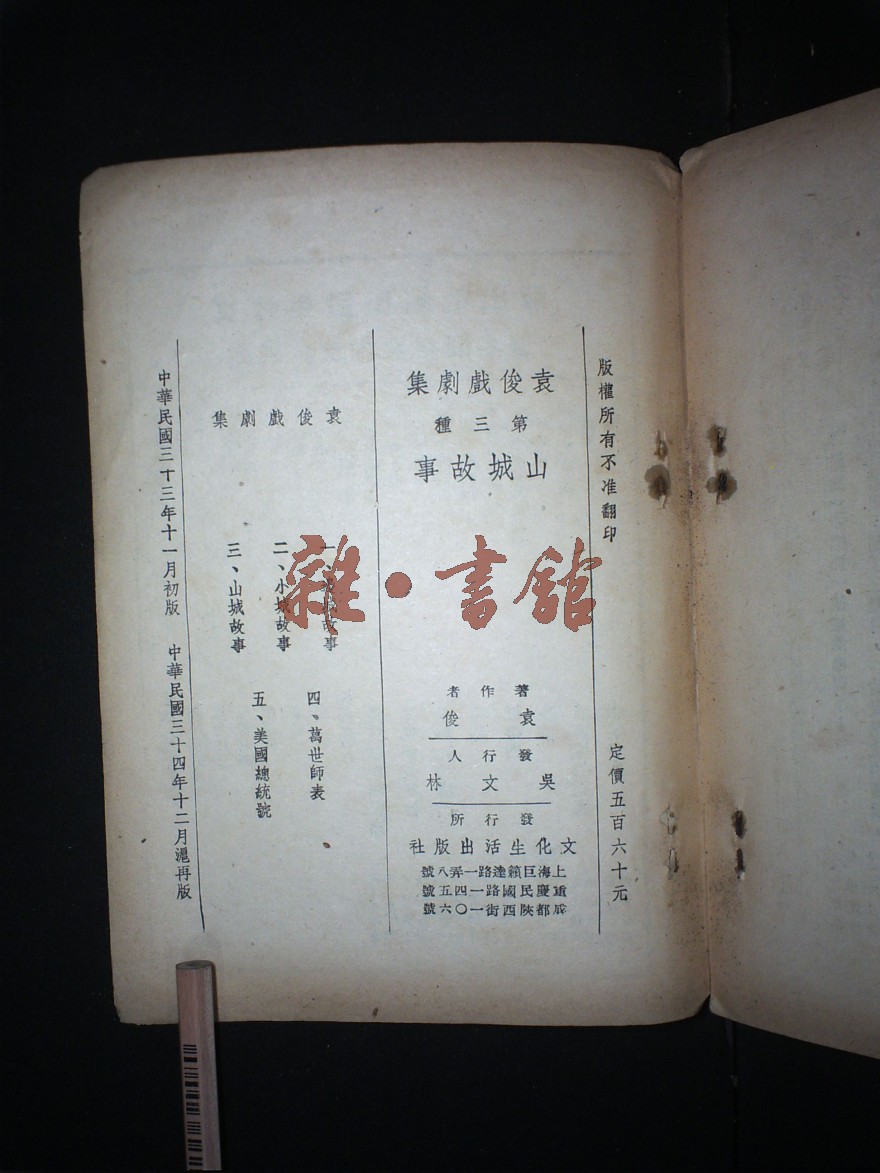 版權所有不准翻印
定價五百六十元
袁俊戲劇集
第三種
山城故事
著作者
袁俊
發行人
吳文林
發行所
文化生活出版社
上海巨籟達路一弄八號
重慶民國路一四五號
成都陝西街一〇六號
袁俊戲劇集
一、 故事
二、小城故事
三、山城故事
四、萬世師表
五、美國總統號
中華民國三十三年十一月初版
中華民國三十四年十二月滬再版
雜·書館